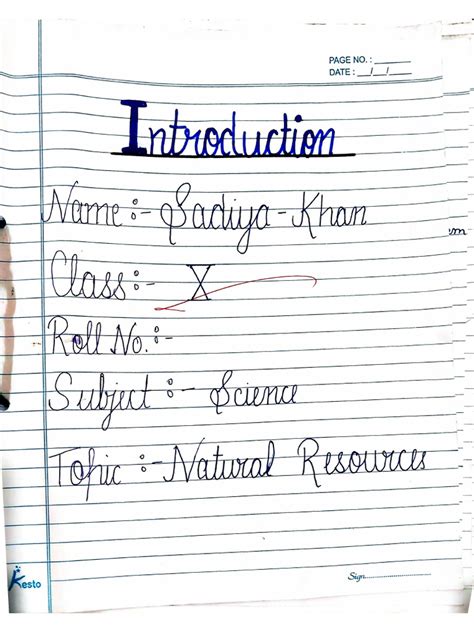 PAGE NO. :
DATE : / /
Introduction
Name :- Sadiya - Khan
Class :- X
Roll No. :-
Subject :- Science
Topic :- Natural Resources
Kesto
Sign